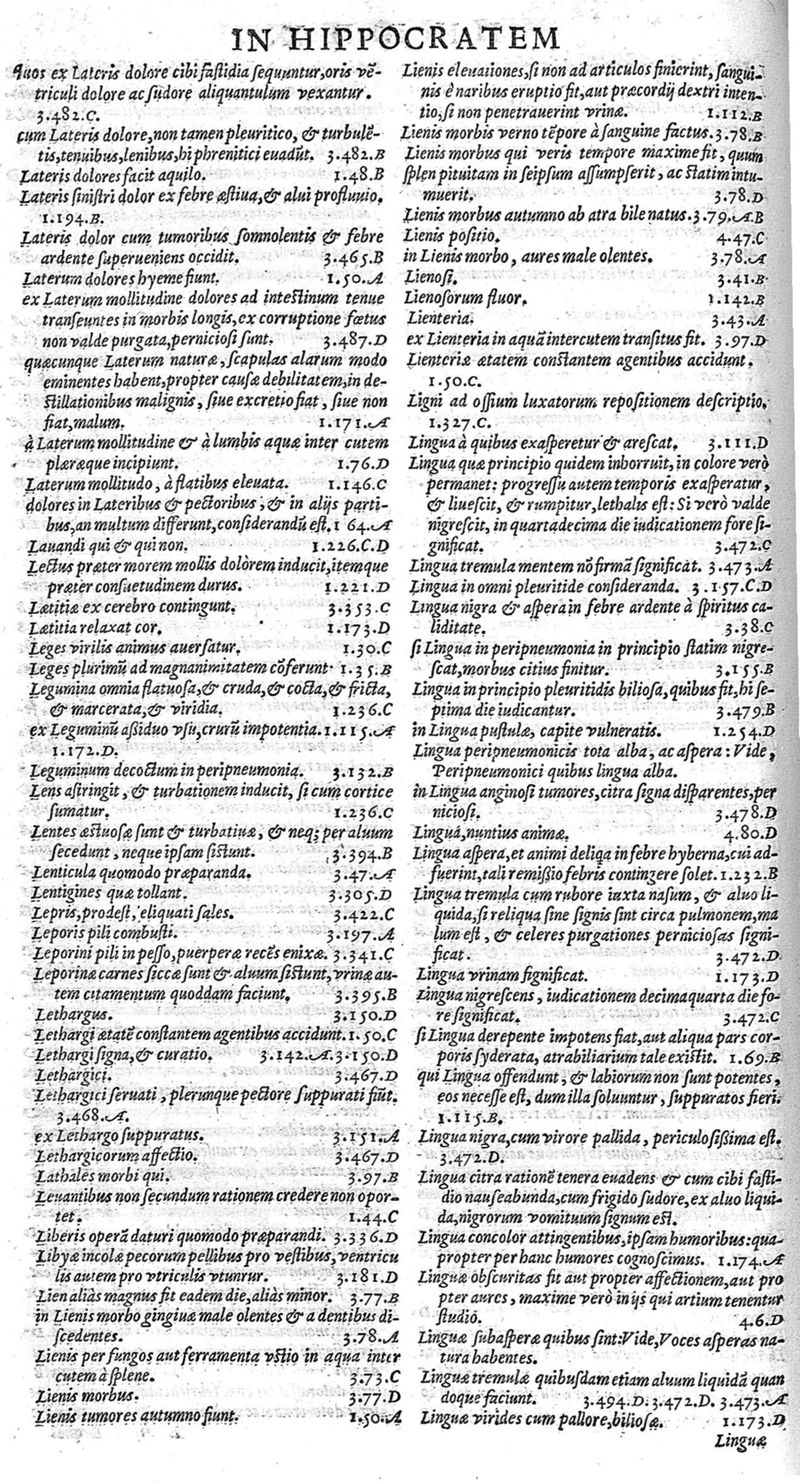 IN HIPPOCRATEM
Quos ex Lateris dolore cibi fastidia sequuntur, oris vē-
triculi dolore ac sudore aliquantulum vexantur.
3.482.C.
cum Lateris dolore, non tamen pleuritico, & turbulē-
tis, tenuibus, lenibus, hi phrenitici evadūt. 3.482.B
Lateris dolores facit aquilo. 1.48.B
Lateris sinistri dolor ex febre æstiua, & alui profluuio.
1.194.B.
Lateris dolor cum tumoribus somnolentis & febre
ardente superueniens occidit. 3.465.B
Laterum dolores hyeme fiunt. 1.50.A
ex Laterum mollitudine dolores ad intestinum tenue
transeuntes in morbis longis, ex corruptione fœtus
non valde purgata, perniciosi sunt. 3.487.D
quæcunque Laterum naturæ, scapulas alarum modo
eminentes habent, propter causæ debilitatem, in de-
stillationibus malignis, siue excretio fiat, siue non
fiat, malum. 1.171.A
à Laterum mollitudine & à lumbis aquæ inter cutem
plæræque incipiunt. 1.76.D
Laterum mollitudo, à flatibus eleuata. 1.146.C
dolores in Lateribus & pectoribus, & in alijs parti-
bus, an multum differunt, considerandū est. 1 64.A
Lauandi qui & qui non. 1.226.C.D
Lectus præter morem mollis dolorem inducit, itemque
præter consuetudinem durus. 1.221.D
Lætitiæ ex cerebro contingunt. 3.353.C
Lætitia relaxat cor. 1.173.D
Leges virilis animus auersatur. 1.30.C
Leges plurimū ad magnanimitatem cōferunt 1.35.B
Legumina omnia flatuosa, & cruda, & cocta, & fricta,
& marcerata, & viridia. 1.236.C
ex Leguminū assiduo vsu, crurū impotentia. 1.115.A
1.172.D.
Leguminum decoctum in peripneumonia. 3.132.B
Lens astringit, & turbationem inducit, si cum cortice
sumatur. 1.236.C
Lentes æstuosæ sunt & turbatiuæ, & neq; per aluum
secedunt, neque ipsam sistunt. 3.394.B
Lenticula quomodo præparanda. 3.47.A
Lentigines quæ tollant. 3.305.D
Lepris, prodest, eliquati sales. 3.422.C
Leporis pili combusti. 3.197.A
Leporini pili in pesso, puerperæ recēs enixæ. 3.341.C
Leporinæ carnes siccæ sunt & aluum sistunt, vrinæ au-
tem citamentum quoddam faciunt. 3.395.B
Lethargus. 3.150.D
Lethargi ætatē constantem agentibus accidunt. 1.50.C
Lethargi signa, & curatio. 3.142.A. 3.150.D
Lethargici. 3.467.D
Lethargici seruati, plerunque pectore suppurati fiūt.
3.468.A.
ex Lethargo suppuratus. 3.151.A
Lethargicorum affectio. 3.467.D
Lathales morbi qui. 3.97.B
Leuantibus non secundum rationem credere non opor-
tet. 1.44.C
Liberis operā daturi quomodo præparandi. 3.336.D
Libyæ incolæ pecorum pellibus pro vestibus, ventricu
lis autem pro vtriculis vtuntur. 3.181.D
Lien aliàs magnus fit eadem die, aliàs minor. 3.77.B
in Lienis morbo gingiuæ male olentes & a dentibus di-
scedentes. 3.78.A
Lienis per fungos aut ferramenta vstio in aqua inter
cutem à splene. 3.73.C
Lienis morbus. 3.77.D
Lienis tumores autumno fiunt. 1.50.A
Lienis eleuationes, si non ad articulos finierint, sangui-
nis è naribus eruptio fit, aut præcordij dextri inten-
tio, si non penetrauerint vrinæ. 1.112.B
Lienis morbis verno tēpore à sanguine factus. 3.78.B
Lienis morbus qui veris tempore maxime fit, quum
splen pituitam in seipsum assumpserit, ac statim intu-
muerit. 3.78.D
Lienis morbus autumno ab atra bile natus. 3.79.A.B
Lienis positio. 4.47.C
in Lienis morbo, aures male olentes. 3.78.A
Lienosi. 3.41.B
Lienosorum fluor. 1.142.B
Lienteria. 3.43.A
ex Lienteria in aquā intercutem transitus fit. 3.97.D
Lienteriæ ætatem constantem agentibus accidunt.
1.50.C.
Ligni ad ossium luxatorum repositionem descriptio.
1.327.C.
Lingua à quibus exasperetur & arescat. 3.111.D
Lingua quæ principio quidem inhorruit, in colore verò
permanet: progressu autem temporis exasperatur,
& liuescit, & rumpitur, lethalis est: Si verò valde
nigrescit, in quartadecima die iudicationem fore si-
gnificat. 3.472.C
Lingua tremula mentem nō firmā significat. 3.473.A
Lingua in omni pleuritide consideranda. 3.157.C.D
Lingua nigra & aspera in febre ardente à spiritus ca-
liditate. 3.38.C
si Lingua in peripneumonia in principio statim nigre-
scat, morbus citius finitur. 3.155.B
Lingua in principio pleuritidis biliosa, quibus fit, hi se-
ptima die iudicantur. 3.479.B
in Lingua pustulæ, capite vulneratis. 1.254.D
Lingua peripneumonicis tota alba, ac aspera: Vide,
Peripneumonici quibus lingua alba.
in Lingua anginosi tumores, citra signa disparentes, per
niciosi. 3.478.D
Lingua, nuntius animæ. 4.80.D
Lingua aspera, et animi deliqa in febre hyberna, cui ad-
fuerint, tali remissio febris contingere solet. 1.232.B
Lingua tremula cum rubore iuxta nasum, & aluo li-
quida, si reliqua sine signis sint circa pulmonem, ma
lum est, & celeres purgationes perniciosas signi-
ficat. 3.472.D
Lingua vrinam significat. 1.173.D
Lingua nigrescens, iudicationem decimaquarta die fo-
re significat. 3.472.C
si Lingua derepente impotens fiat, aut aliqua pars cor-
poris syderata, atrabiliarium tale existit. 1.69.B
qui Lingua offendunt, & labiorum non sunt potentes,
eos necesse est, dum illa soluuntur, suppuratos fieri.
1.115.B.
Lingua nigra, cum virore pallida, periculosissima est.
3.472.D.
Lingua citra rationē tenera euadens & cum cibi fasti-
dio nauseabunda, cum frigido sudore, ex aluo liqui-
da, nigrorum vomituum signum est.
Lingua concolor attingentibus, ipsam humoribus: qua-
propter per hanc humores cognoscimus. 1.174.A
Linguæ obscuritas fit aut propter affectionem, aut pro
pter aures, maxime verò in ijs qui artium tenentur
studio. 4.6.D
Linguæ subasperæ quibus sint: Vide, Voces asperas na-
tura habentes.
Linguæ tremulæ quibusdam etiam aluum liquidā quan
doque faciunt. 3.494.D. 3.472.D. 3.473.A
Linguæ virides cum pallore, biliosæ. 1.173.D
Linguæ